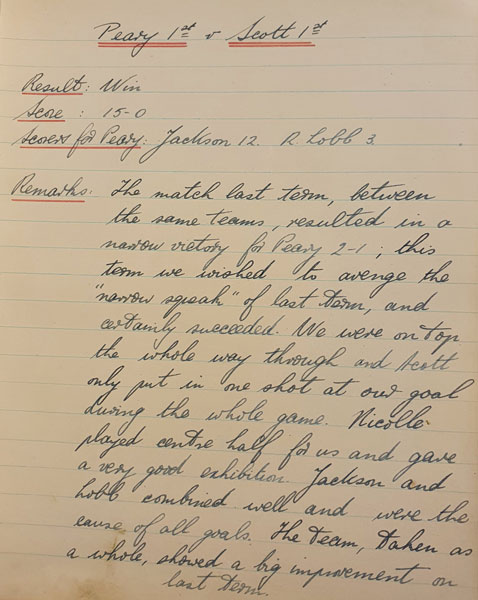 Peary 1st v Scott 1st
Result: Win
Score : 15-0
Scorers for Peary: Jackson 12. R. Lobb 3.
Remarks: The match last term, between
the same teams, resulted in a
narrow victory for Peary 2-1; this
term we wished to avenge the
"narrow squeak" of last term, and
certainly succeeded. We were on top
the whole way through and Scott
only put in one shot at our goal
during the whole game. Nicolle
played centre half for us and gave
a very good exhibition. Jackson and
Lobb combined well and were the
cause of all goals. The team, taken as
a whole, showed a big improvement on
last term.